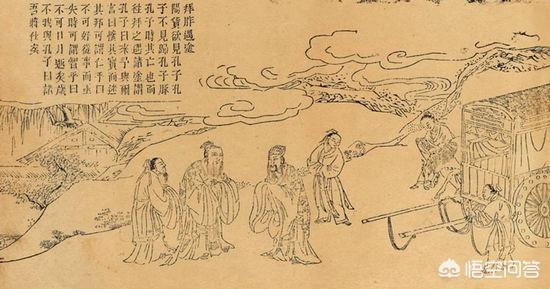 拜胙遇途
陽貨欲見孔子孔
子不見歸孔子豚
孔子時其亡也而
往拜之遇諸塗謂
孔子曰來予與爾
言曰懷其寶而迷
其邦可謂仁乎曰
不可好從事而亟
失時可謂智乎曰
不可日月逝矣歲
不我與孔子曰諾
吾將仕矣
悟空问答